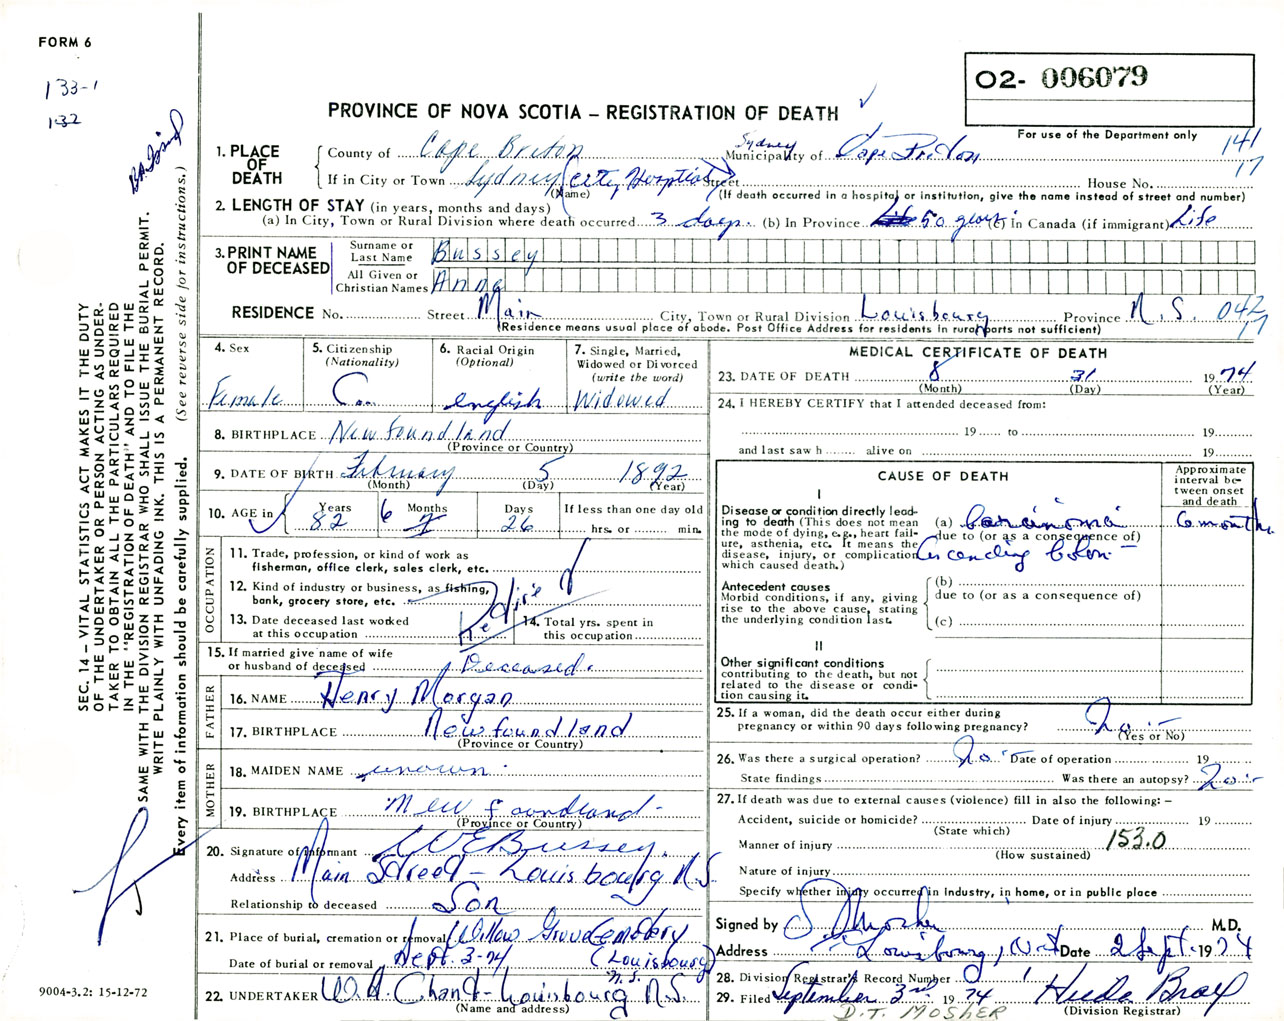 FORM 6
133-1
132
O2- 006079
PROVINCE OF NOVA SCOTIA – REGISTRATION OF DEATH
For use of the Department only
141
17
1. PLACE OF DEATH
County of Cape Briton Municipality of Sydney Cape Breton
If in City or Town Sydney (City Hospital) Street House No.
(Name) (If death occurred in a hospital or institution, give the name instead of street and number)
2. LENGTH OF STAY (in years, months and days)
(a) In City, Town or Rural Division where death occurred 3 days (b) In Province Life 50 years (c) In Canada (if immigrant) Life
3. PRINT NAME OF DECEASED
Surname or Last Name Bussey
All Given or Christian Names Anna
RESIDENCE No. Street Main City, Town or Rural Division Louisbourg Province N.S. 042
17
(Residence means usual place of abode. Post Office Address for residents in rural parts not sufficient)
4. Sex
Female
5. Citizenship
(Nationality)
6. Racial Origin
(Optional)
english
7. Single, Married,
Widowed or Divorced
(write the word)
Widowed
8. BIRTHPLACE Newfoundland
(Province or Country)
9. DATE OF BIRTH February 5 1892
(Month) (Day) (Year)
10. AGE in Years Months Days If less than one day old
82 6 7 26 hrs. or min.
OCCUPATION
11. Trade, profession, or kind of work as
fisherman, office clerk, sales clerk, etc.
12. Kind of industry or business, as fishing,
bank, grocery store, etc.
13. Date deceased last worked
at this occupation
14. Total yrs. spent in
this occupation
15. If married give name of wife
or husband of deceased Deceased.
FATHER
16. NAME Henry Morgan
17. BIRTHPLACE Newfoundland
(Province or Country)
MOTHER
18. MAIDEN NAME unown
19. BIRTHPLACE Mewfoundland
(Province or Country)
20. Signature of informant W E Bussey.
Address Main Street – Louisbourg N.S.
Relationship to deceased Son
21. Place of burial, cremation or removal Willow Grove Cemetery
Date of burial or removal Sept. 3-74 (Louisbourg)
N.S.
22. UNDERTAKER W.A. Chant – Louisbourg N.S.
(Name and address)
MEDICAL CERTIFICATE OF DEATH
23. DATE OF DEATH 8 31 1974
(Month) (Day) (Year)
24. I HEREBY CERTIFY that I attended deceased from:
19 to 19
and last saw h alive on 19
CAUSE OF DEATH
Approximate interval between onset and death
I
Disease or condition directly leading to death (This does not mean the mode of dying, e.g., heart failure, asthenia, etc. It means the disease, injury, or complication which caused death.)
(a) Carcinoma 6 months
due to (or as a consequence of)
Ascending Colon –
Antecedent causes
Morbid conditions, if any, giving
rise to the above cause, stating
the underlying condition last.
(b)
due to (or as a consequence of)
(c)
II
Other significant conditions
contributing to the death, but not
related to the disease or condition causing it.
25. If a woman, did the death occur either during
pregnancy or within 90 days following pregnancy? No
(Yes or No)
26. Was there a surgical operation? No Date of operation 19
State findings Was there an autopsy? No
27. If death was due to external causes (violence) fill in also the following: –
Accident, suicide or homicide? Date of injury 19
(State which)
153.0
Manner of injury
(How sustained)
Nature of injury
Specify whether injury occurred in industry, in home, or in public place
Signed by Mosher M.D.
Address Louisbourg, N.S. Date 2 Sept. 1974
28. Division Registrar's Record Number
29. Filed September 3rd 1974 Hilda Bray
(Division Registrar)
D.T. MOSHER
SEC. 14 – VITAL STATISTICS ACT MAKES IT THE DUTY
OF THE UNDERTAKER OR PERSON ACTING AS UNDER-
TAKER TO OBTAIN ALL THE PARTICULARS REQUIRED
IN THE "REGISTRATION OF DEATH" AND TO FILE THE
SAME WITH THE DIVISION REGISTRAR WHO SHALL ISSUE THE BURIAL PERMIT.
WRITE PLAINLY WITH UNFADING INK. THIS IS A PERMANENT RECORD.
Every item of information should be carefully supplied. (See reverse side for instructions.)
9004-3.2: 15-12-72